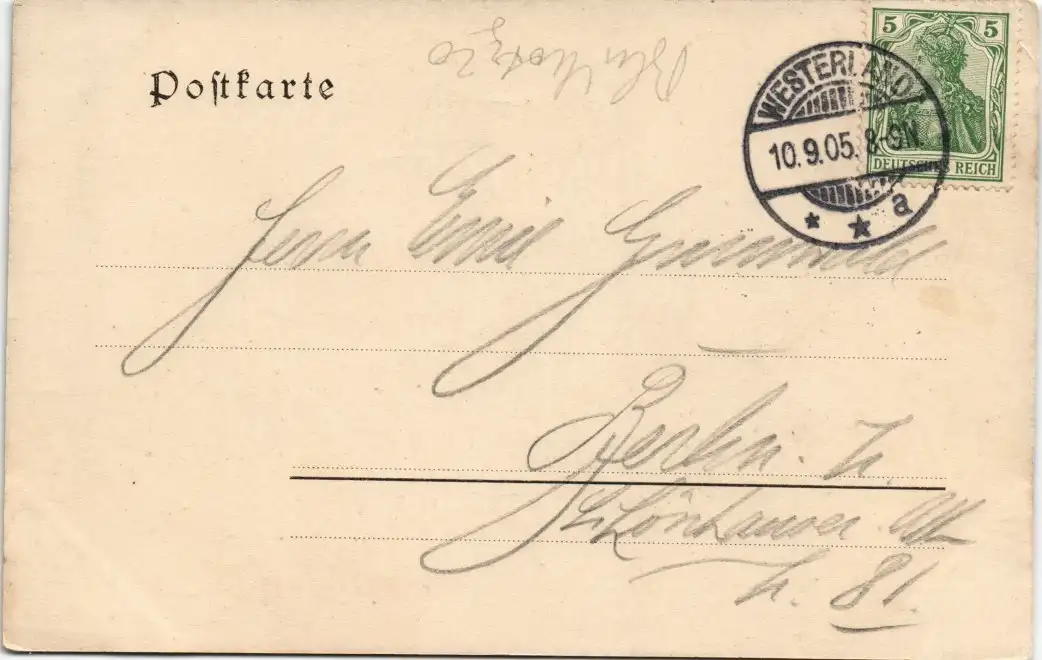 Postkarte
5 5
DEUTSCHES REICH
WESTERLAND
10.9.05. 8-9N.
* * a
Herrn Emil Grunwald
Berlin. N.
Schönhauser All
N. 81.